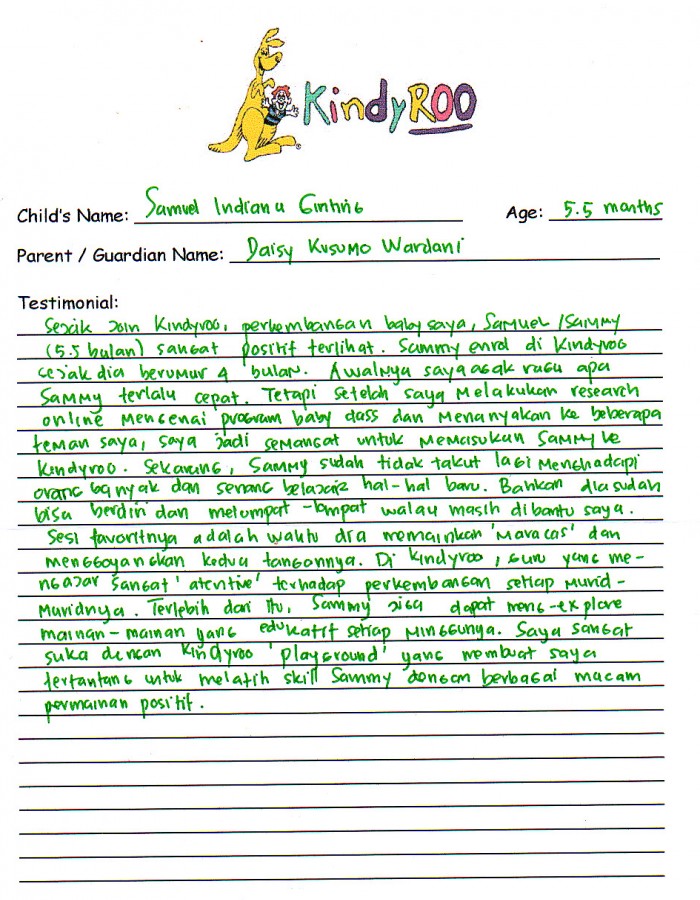 KindyROO
Child's Name: Samuel Indiana Ginting Age: 5.5 months
Parent / Guardian Name: Daisy Kusumo Wardani
Testimonial:
Sejak join Kindyroo, perkembangan baby saya, Samuel /Sammy
(5.5 bulan) sangat positif terlihat. Sammy enrol di Kindyroo
sejak dia berumur 4 bulan. Awalnya saya agak ragu apa
Sammy terlalu cepat. Tetapi setelah saya melakukan research
online mengenai program baby class dan menanyakan ke beberapa
teman saya, saya jadi semangat untuk memasukan Sammy ke
Kindyroo. Sekarang, Sammy sudah tidak takut lagi menghadapi
orang banyak dan senang belajar hal-hal baru. Bahkan dia sudah
bisa berdiri dan melompat-lompat walau masih dibantu saya.
Sesi favoritnya adalah waktu dia memainkan 'Maracas' dan
menggoyangkan kedua tangannya. Di Kindyroo, guru yang me-
ngajar sangat 'atentive' terhadap perkembangan setiap murid-
muridnya. Terlebih dari itu, Sammy bisa dapat meng-explore
mainan-mainan yang edukatif setiap minggunya. Saya sangat
suka dengan Kindyroo 'playground' yang membuat saya
tertantang untuk melatih skill Sammy dengan berbagai macam
permainan positif.